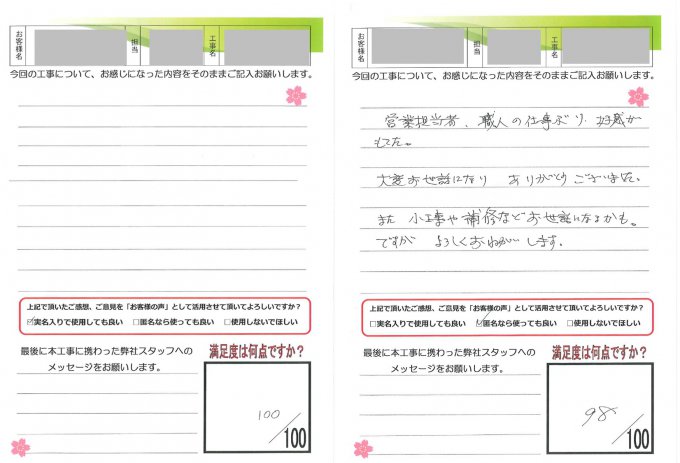 お客様名
担当
工事名
今回の工事について、お感じになった内容をそのままご記入お願いします。
上記で頂いたご感想、ご意見を「お客様の声」として活用させて頂いてよろしいですか？
☑実名入りで使用しても良い □匿名なら使っても良い □使用しないでほしい
最後に本工事に携わった弊社スタッフへの
メッセージをお願いします。
満足度は何点ですか？
100
/100
お客様名
担当
工事名
今回の工事について、お感じになった内容をそのままご記入お願いします。
営業担当者、職人の仕事ぶり、好感が
もてた。
大変お世話になり ありがとうございました。
また 小工事や補修などお世話になるかも。
ですが よろしくおねがいします。
上記で頂いたご感想、ご意見を「お客様の声」として活用させて頂いてよろしいですか？
□実名入りで使用しても良い ☑匿名なら使っても良い □使用しないでほしい
最後に本工事に携わった弊社スタッフへの
メッセージをお願いします。
満足度は何点ですか？
98
/100